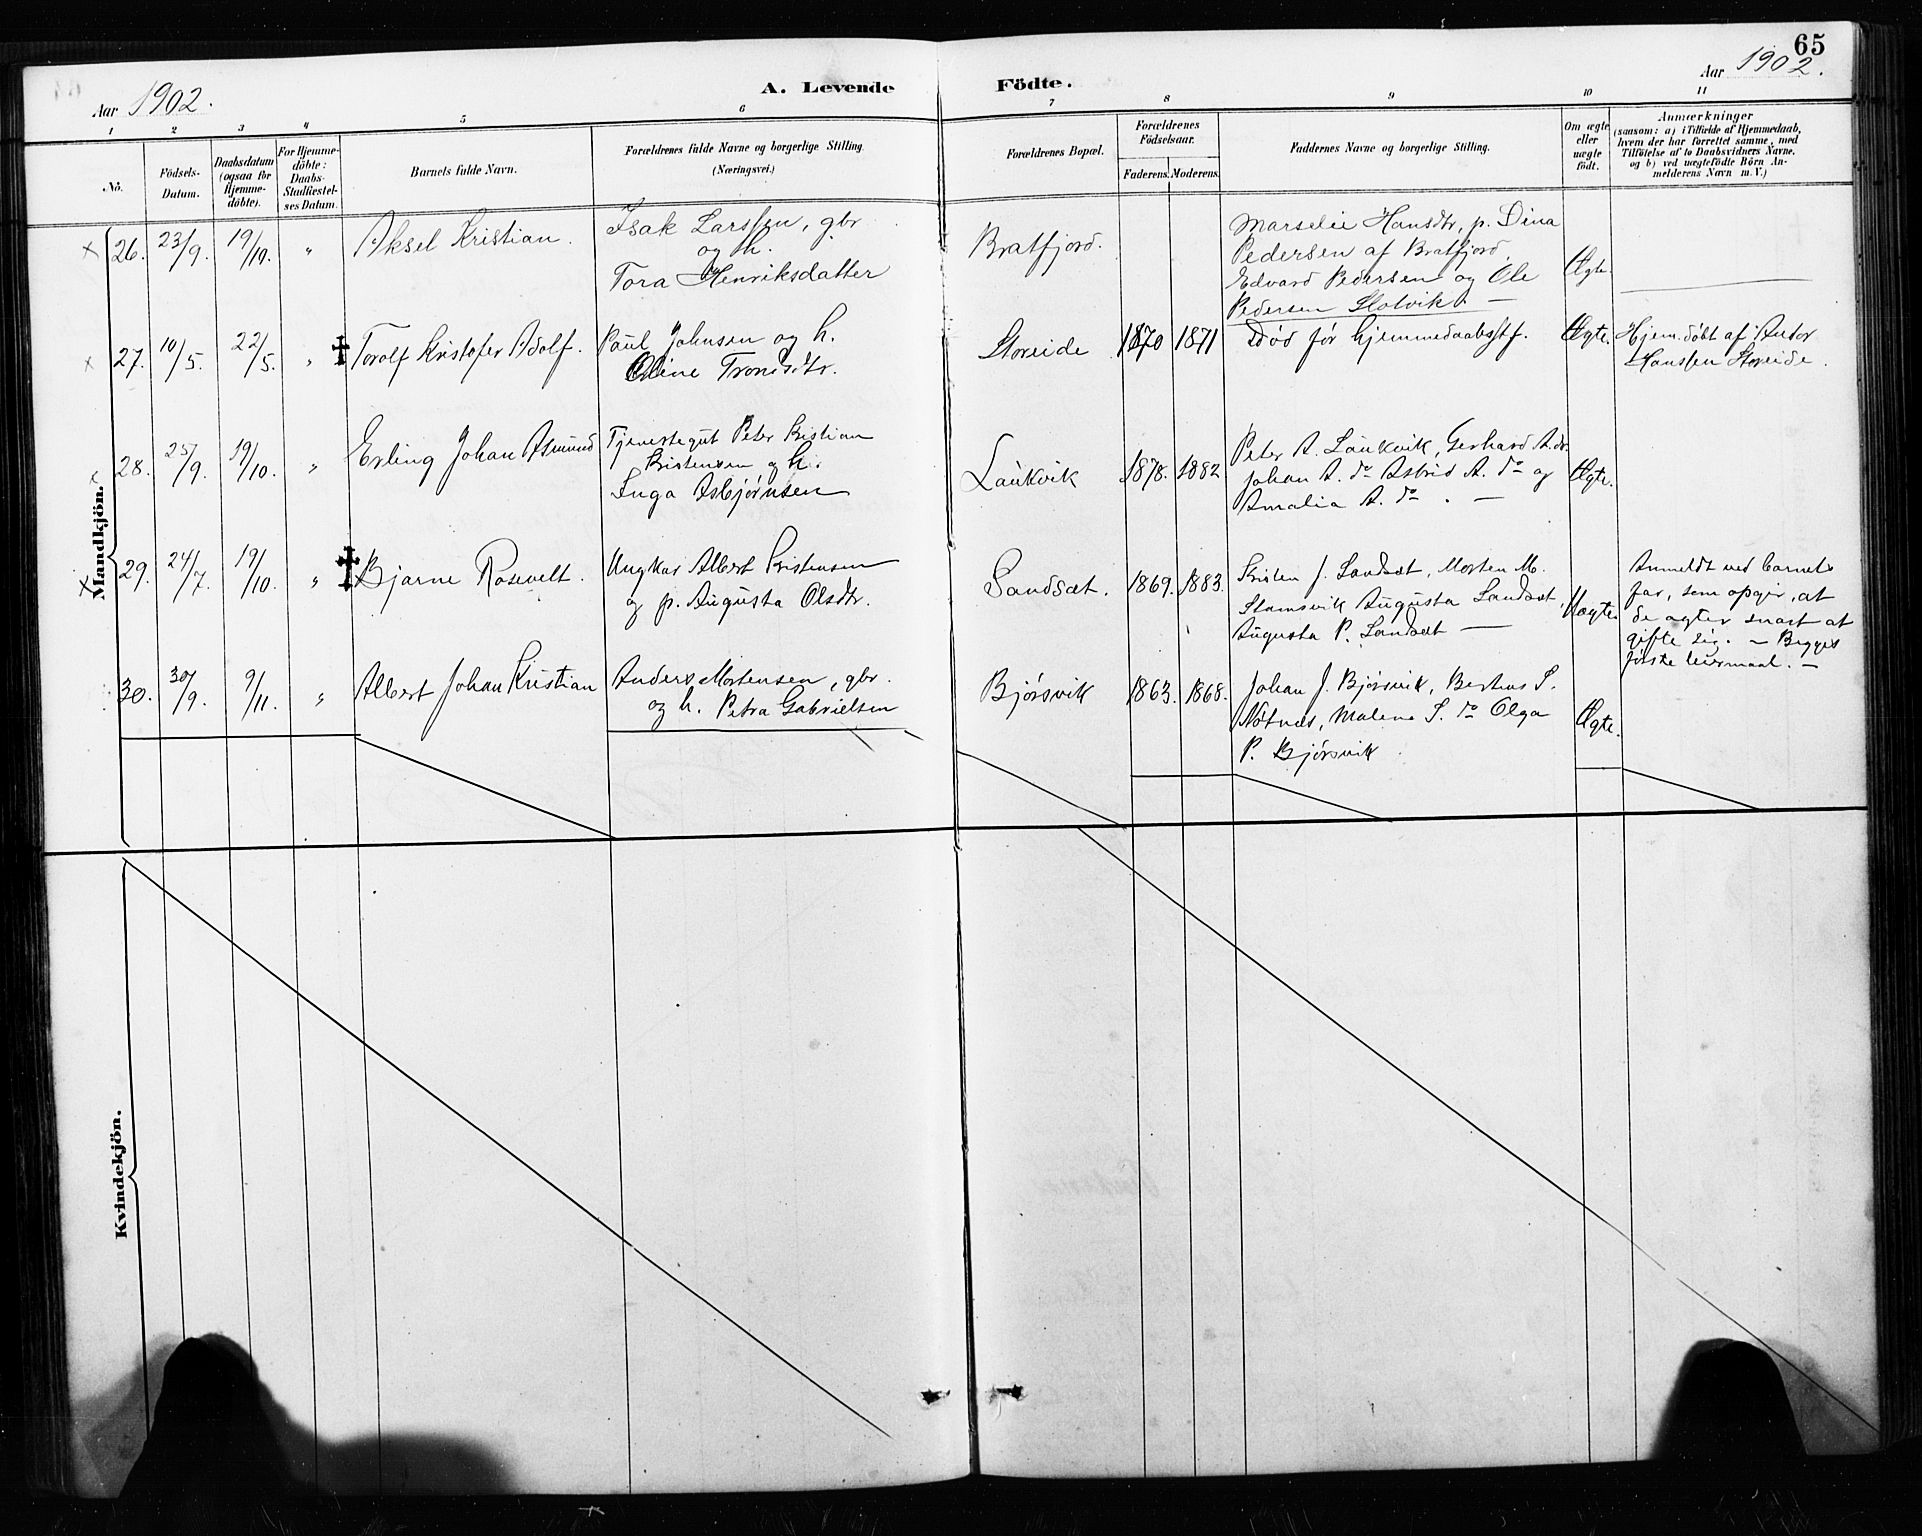 65
Aar 1902.
A. Levende Födte.
Aar 1902.
1 2 3 4 5 6 7 8 9 10 11
No.
Födsels-
Datum.
Daabsdatum
(ogsaa för
Hjemme-
döbte).
For Hjemme-
döbte:
Daabs-
Stadfæstel-
ses Datum.
Barnets fulde Navn.
Forældrenes fulde Navne og borgerlige Stilling.
(Næringsvei.)
Forældrenes Bopæl.
Forældrenes
Födselsaar.
Faderens. Moderens.
Faddernes Navne og borgerlige Stilling.
Om ægte
eller
uægte
födt.
Anmærkninger
(saasom: a) i Tilfælde af Hjemmedaab,
hvem der har forrettet samme, med
Tilföielse af to Daabsvidners Navne.
og b) ved uægtefödte Börn An-
melderens Navn m. V.)
Mandkjön.
26. 23/9. 19/10. " Aksel Kristian.
Isak Larssen, gbr.
og h.
Tora Henriksdatter
Bratfjord.
Marselie Hansdtr, p. Dina
Pedersen af Bratfjord,
Edvard Pedersen og Ole
Pedersen Slotvik. —
Ægte.
27. 10/5. 22/5. " ✝ Torolf Kristofer Adolf.
Paul Johnsen og h.
Oline Trondsdtr.
Storeide 1870 1871
Död før hjemmedaabsstf.
Ægte.
Hjem.döbt af Anton
Hanssen Storeide.
28. 25/9. 19/10. " Erling Johan Asmund
Tjenestegut Peter Kristian
Kristensen og h.
Inga Asbjørnsen
Laukvik 1878. 1882
Peter A. Laukvik, Gerhard A. do.
Johan A. do Astrid A. do og
Amalia A. do. —
Ægte.
29. 24/7. 19/10. " ✝ Bjarne Rosevelt.
Ungkar Albert Kristensen
og p. Augusta Olsdtr.
Sandsæt. 1869. 1883.
Kristen J. Sandsæt, Morten M.
Stamsvik Augusta Sandsæt,
Augusta P. Sandsæt —
Uægte.
Anmeldt ved barnets
far, som opgir, at
de agter snart at
gifte sig. — Begges
første leiermaal. —
30. 30/9. 9/11. " Albert Johan Kristian
Anders Mortensen, gbr.
og h. Petra Gabrielsen
Bjørsvik 1863. 1868.
Johan J. Bjørsvik, Bertus S.
Nøtnes, Malene S. do Olga
P. Bjørsvik
Ægte.
Kvindekjön.